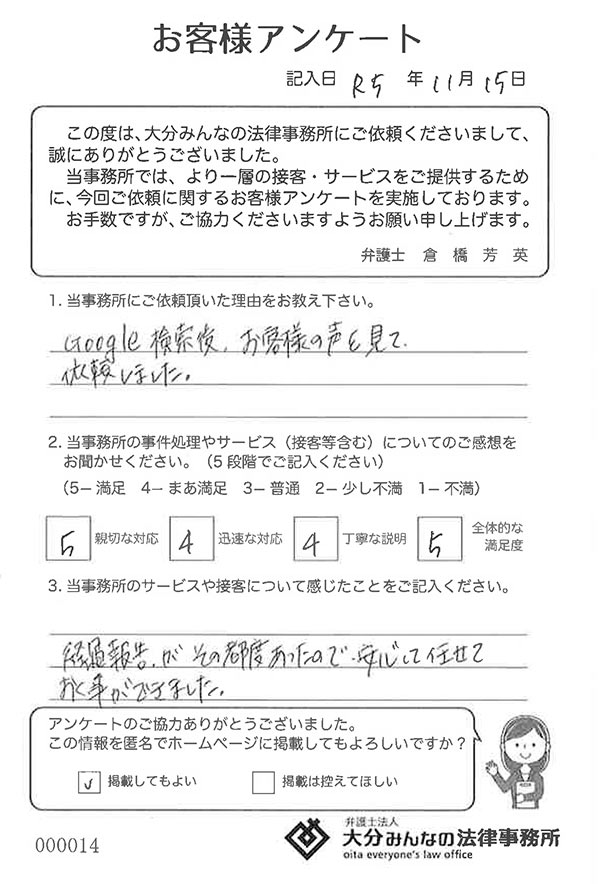 お客様アンケート
記入日 R5 年 11月 15日
この度は、大分みんなの法律事務所にご依頼くださいまして、
誠にありがとうございました。
当事務所では、より一層の接客・サービスをご提供するため
に、今回ご依頼に関するお客様アンケートを実施しております。
お手数ですが、ご協力くださいますようお願い申し上げます。
弁護士 倉橋芳英
1. 当事務所にご依頼頂いた理由をお教え下さい。
Google 検索後、お客様の声を見て、
依頼しました。
2. 当事務所の事件処理やサービス（接客等含む）についてのご感想を
お聞かせください。（5段階でご記入ください）
（5－満足 4－まあ満足 3－普通 2－少し不満 1－不満）
5 親切な対応 4 迅速な対応 4 丁寧な説明 5 全体的な
満足度
3. 当事務所のサービスや接客について感じたことをご記入ください。
経過報告が その都度あったので、安心して任せて
おく事ができました。
アンケートのご協力ありがとうございました。
この情報を匿名でホームページに掲載してもよろしいですか？
✓ 掲載してもよい 掲載は控えてほしい
000014
弁護士法人
大分みんなの法律事務所
oita everyone's law office